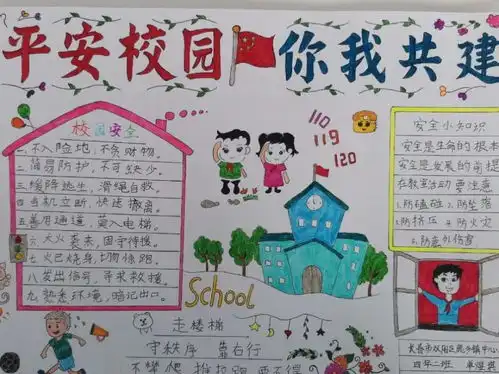 平安校园 你我共建
校园安全
一、不入险地，不贪财物。
二、简易防护，不可缺少。
三、缓降逃生，滑绳自救。
四、当机立断，快速撤离。
五、善用通道，莫入电梯。
六、大火袭来，固守待援。
七、火已烧身，切勿惊跑。
八、发出信号，寻求救援。
九、熟悉环境，暗记出口。
110
119
120
School
安全小知识
安全是生命的根本
安全是发展的前提
在教室活动要注意
1.防磕碰 2.防坠落
3.防挤压 4.防火灾
5.防意外伤害
走楼梯
守秩序 靠右行
不攀爬 推拉跑 要不得
长春市双阳区 乡镇中心
四年二班